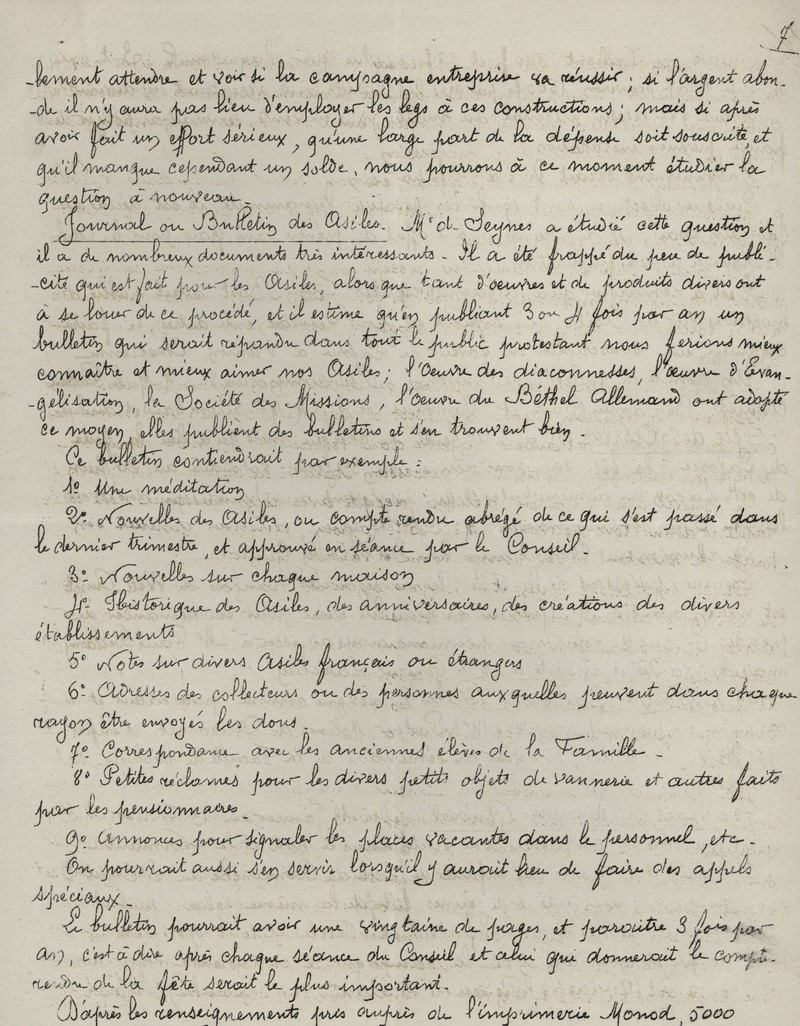 7
-blement attendre et voir si la campagne entreprise va réussir; si l'argent abon-
-de il n'y aura pas lieu d'employer les legs à ces constructions; mais si après
avoir fait un effort sérieux, qu'une large part de la dépense soit souscrite, et
qu'il manque cependant un solde, nous pourrons à ce moment étudier la
question à nouveau.
Journal ou Bulletin des Asiles. Mr de Seynes a étudié cette question et
il a de nombreux documents très intéressants - Il a été frappé du peu de publi-
-cité qui est fait pour les Asiles, alors que tant d'oeuvres et de produits divers ont
à se louer de ce procédé, et il estime qu'en publiant 3 ou 4 fois par an un
bulletin qui serait répandu dans tout le public protestant nous ferions mieux
connaître et mieux aimer nos Asiles; l'oeuvre des diaconnesses, l'oeuvre d'Evan-
-gélisation, la Société des Missions, l'oeuvre du Béthel Allemand ont adopté
ce moyen, elles publient des bulletins et s'en trouvent bien.
Ce bulletin contiendrait par exemple:
1º Une méditation
2º Nouvelles des Asiles, ou compte rendu abrégé de ce qui s'est passé dans
le dernier trimestre, et approuvé en séance par le Conseil.
3º Nouvelles sur chaque maison
4º Historique des Asiles, des anniversaires, des créations des divers
établissements
5º Notes sur divers Asiles français ou étrangers
6º Adresses des collecteurs ou des personnes auxquelles peuvent dans chaque
rayon être envoyés les dons.
7º Correspondance avec les anciennes élèves de la Famille.
8º Petites réclames pour les divers petits objets de vannerie et autres faits
par les pensionnaires.
9º Annonces pour signaler les places vacantes dans le personnel, etc.
On pourrait aussi s'en servir lorsqu'il y aurait lieu de faire des appels
spéciaux.
Le bulletin pourrait avoir une vingtaine de pages, et paroitre 3 fois par
an, c'est à dire après chaque séance du Conseil et celui qui donnerait le compte-
rendu de la fête serait le plus important.
D'après les renseignements pris auprès de l'imprimerie Monod, 5000